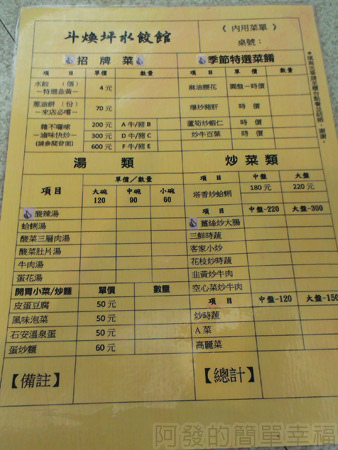 斗煥坪水餃館
《內用菜單》
桌號：
招牌菜
項目 單價 數量
水餃（個）
－特選韭黃－ 4元
蔥油餅（份）
－來店必嚐－ 70元
雞不囉嗦
－滷味快炒－
(請參閱背面)
200元 A牛/豬B
300元 C牛/豬D
600元 F牛/豬E
季節特選菜餚
項目 單價 數量
麻油腰花 圓盤－時價
爆炒雞肝 時價
蘆筍炒蝦仁 時價
炒牛百葉 時價
湯類
項目
單價/數量
大碗 120
中碗 90
小碗 60
酸辣湯
蛤蜊湯
酸菜三層肉湯
酸菜肚片湯
牛肉湯
蛋花湯
炒菜類
項目 單價/數量
中盤 大盤
塔香炒蛤蜊 180元 220元
項目 中盤-220 大盤-300
薑絲炒大腸
三鮮時蔬
客家小炒
花枝炒時蔬
韭黃炒牛肉
空心菜炒牛肉
項目 中盤-120 大盤-150
炒時蔬
A菜
高麗菜
開胃小菜/炒麵 單價 數量
皮蛋豆腐 50元
風味泡菜 50元
石安溫泉蛋 50元
蛋炒麵 60元
【備註】
【總計】
阿發的簡單幸福